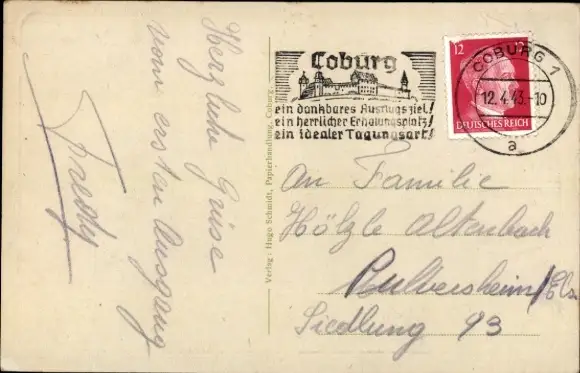 Herzliche Grüse
vom ersten Ausgang
Freddy
Verlag: Hugo Schmidt, Papierhandlung, Coburg.
Coburg
ein dankbares Ausflugsziel!
ein herrlicher Erholungsplatz!
ein idealer Tagungsort!
12 12
DEUTSCHES REICH
COBURG 1
12.4.43.-10
a
An Familie
Hölzle Altenbach
Pulversheim/Els.
Siedlung 93